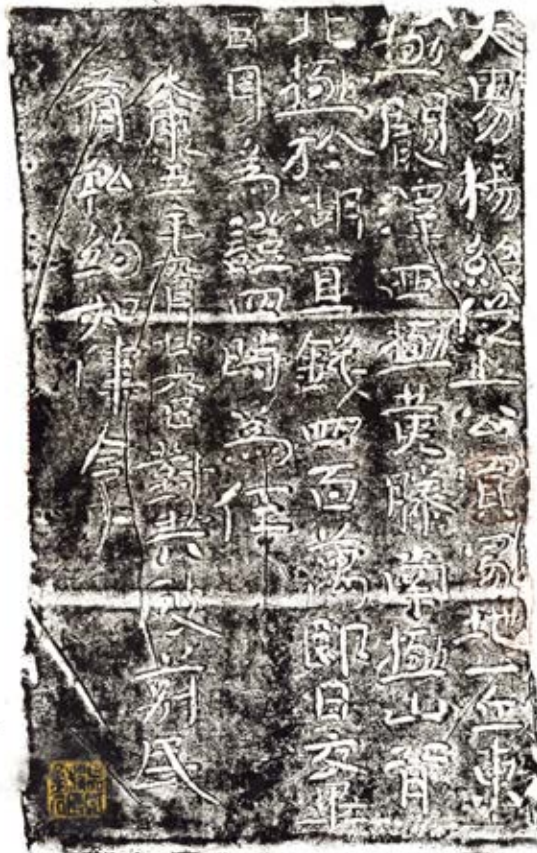 大男楊紹從土公買冢地一丘東
極闞澤西極黃滕南極山背
北極於湖直錢四百萬即日交畢
日月為證四時為任
太康五年九月廿九日對共破莂民
有私約如律令